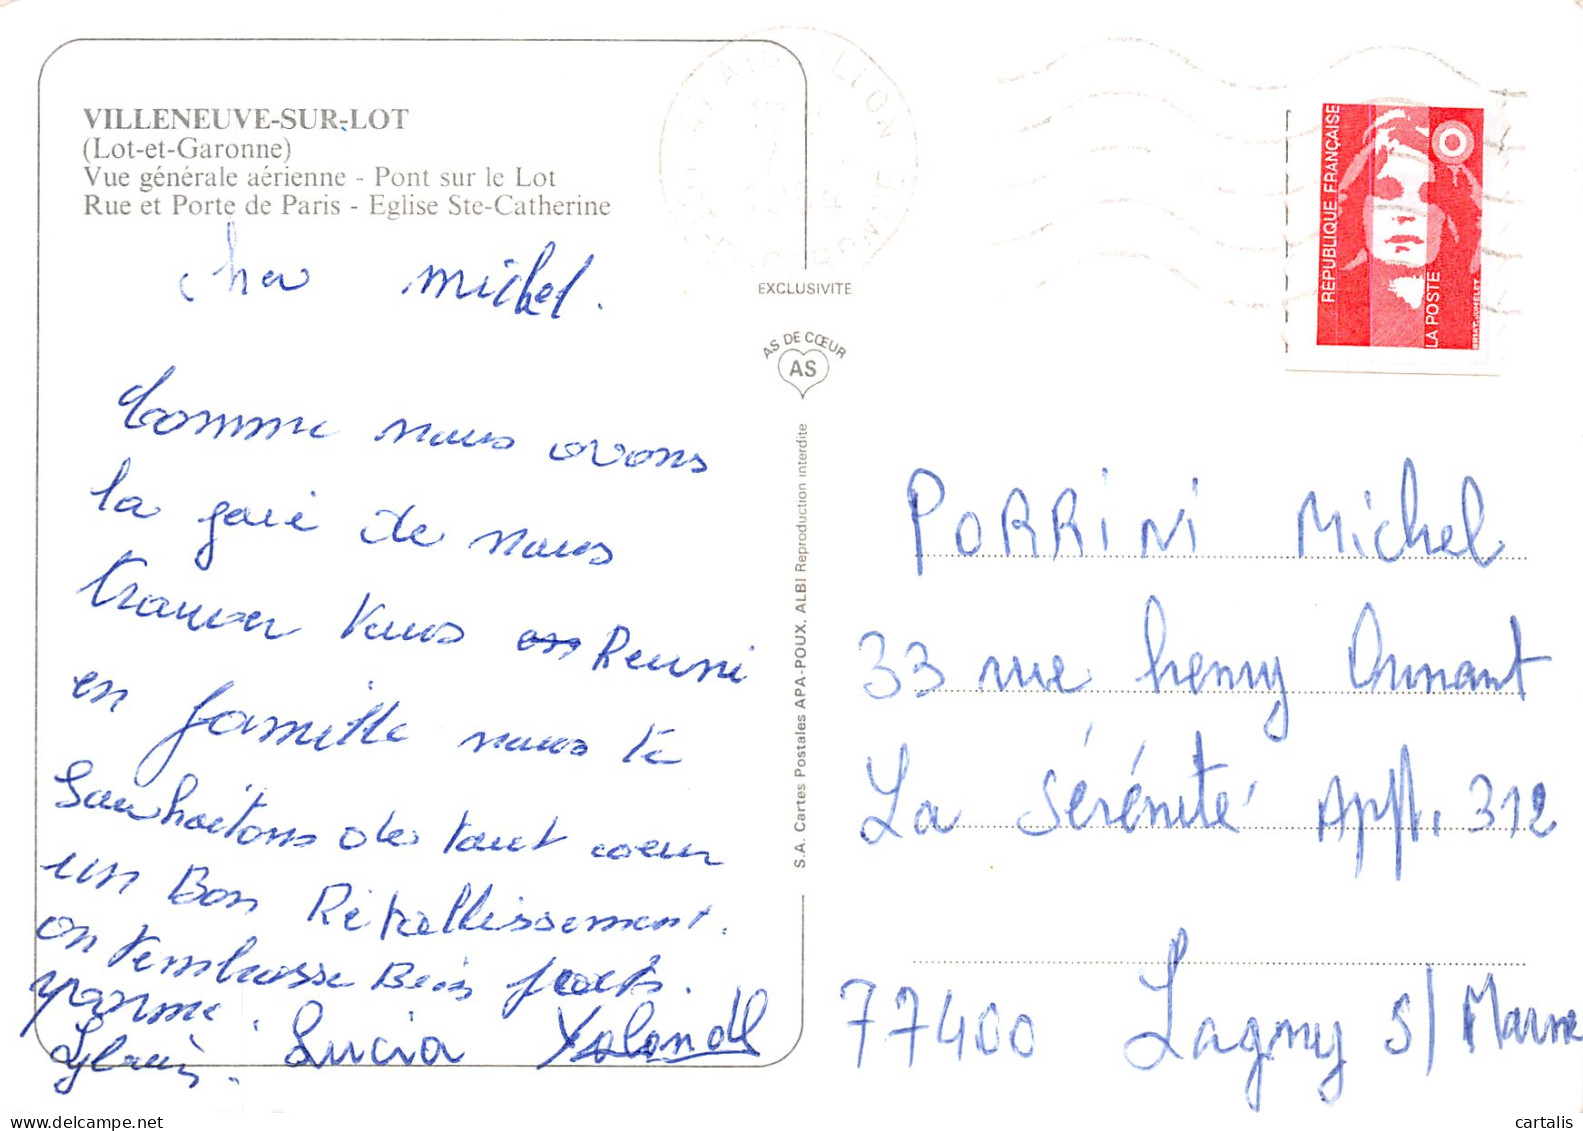 VILLENEUVE-SUR-LOT
(Lot-et-Garonne)
Vue générale aérienne - Pont sur le Lot
Rue et Porte de Paris - Eglise Ste-Catherine
cher Michel.
Comme nous avons
la joie de nous
trouver tous Reuni
en famille nous te
Souhaitons de tout coeur
un Bon Retablissement.
on t'embrasse Bien forts.
yvonne.
Sylvain. Lucia Yolande
EXCLUSIVITE
AS DE CŒUR
AS
S.A. Cartes Postales APA-POUX, ALBI Reproduction interdite
REPUBLIQUE FRANÇAISE
LA POSTE
BRIAT-JUMELET
PORRINI Michel
33 rue henry Dunant
La Sérénité Appt. 312
77400 Lagny s/Marne
delcampe.net
cartalis